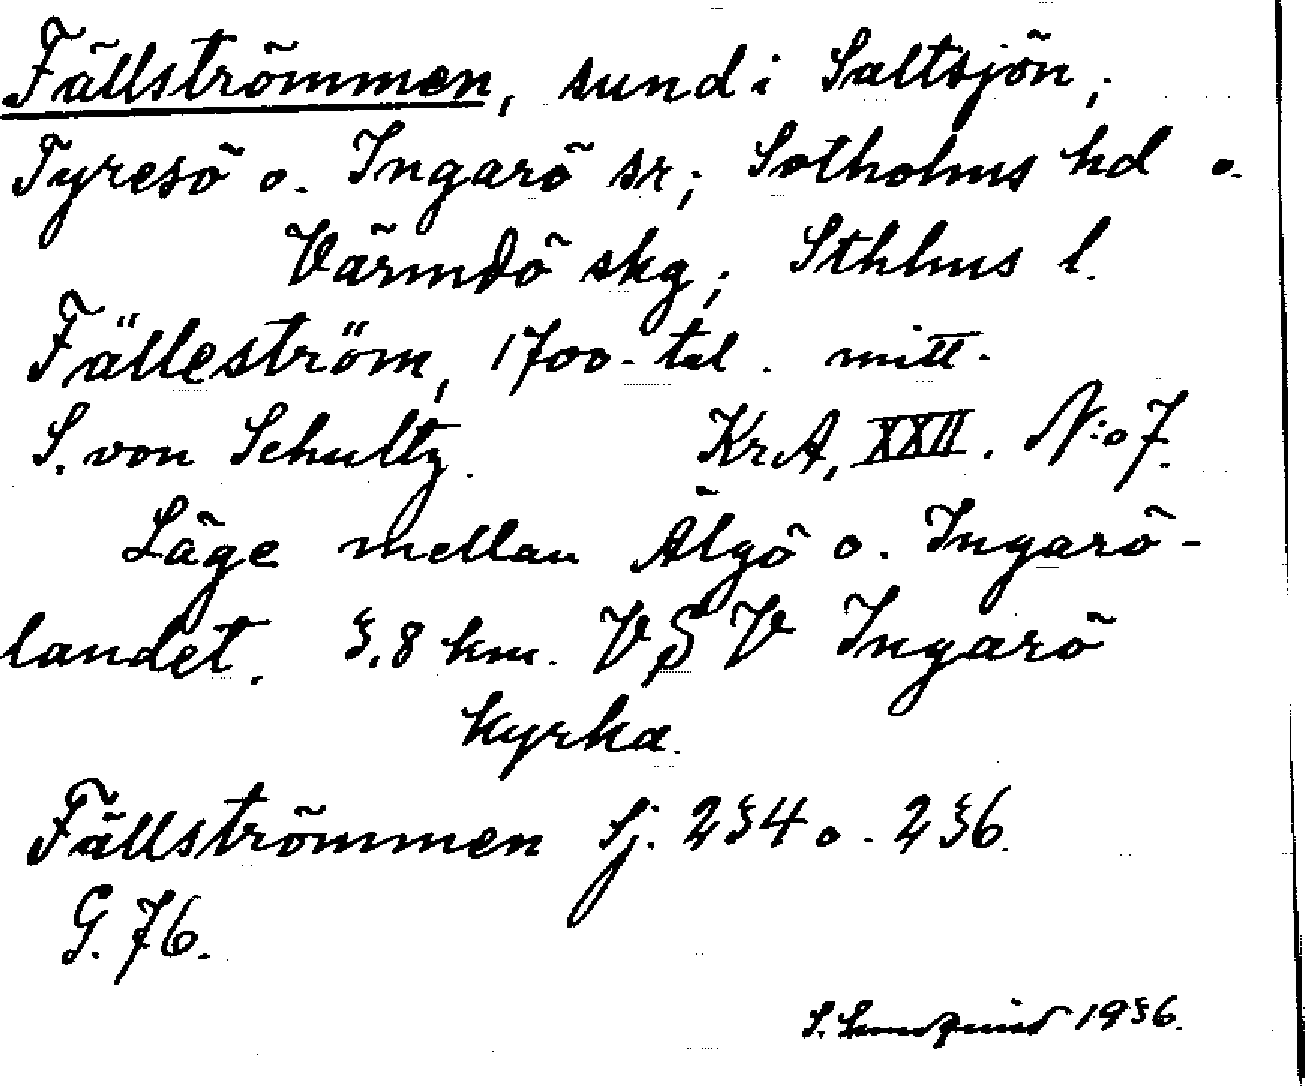 Fällströmmen, sund i Saltsjön,
Tyresö o. Ingarö sr; Sotholms hd o.
Värmdö skg; Sthlms l.
Fälleström, 1700-tal. mitt.
S. von Schultz. KrA, XXII. N:o 7.
Läge mellan Älgö o. Ingarö-
landet. 3,8 km. VSV Ingarö
kyrka.
Fällströmmen Sj. 234 o. 236.
G. 76.
S. 1936.